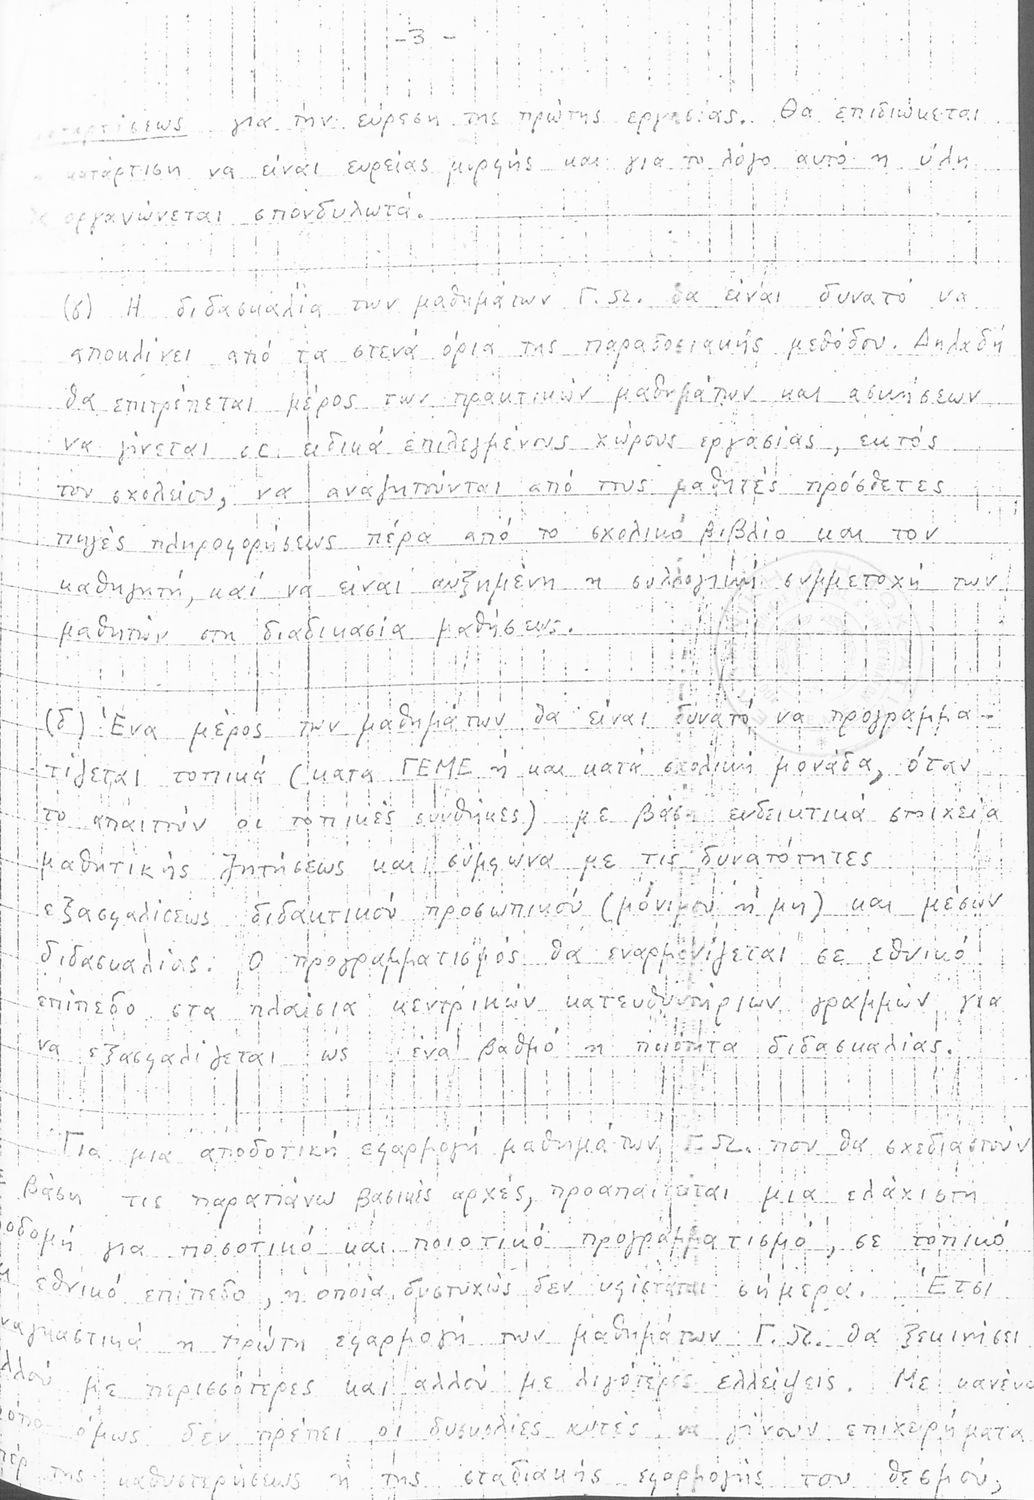 -3-
για την εύρεση της πρώτης εργασίας. Θα επιδιώκεται
κατάρτιση να είναι ευρείας μορφής και για το λόγο αυτό η ύλη
οργανώνεται σπονδυλωτά.
(γ) Η διδασκαλία των μαθημάτων Γ.Ω. θα είναι δυνατό να
αποκλίνει από τα στενά όρια της παραδοσιακής μεθόδου. Δηλαδή
θα επιτρέπεται μέρος των πρακτικών μαθημάτων και ασκήσεων
να γίνεται σε ειδικά επιλεγμένους χώρους εργασίας, εκτός
του σχολείου, να αναζητούνται από τους μαθητές πρόσθετες
πηγές πληροφορήσεως πέρα από το σχολικό βιβλίο και τον
καθηγητή, καί να είναι αυξημένη η συλλογική συμμετοχή των
μαθητών στη διαδικασία μαθήσεως.
(δ) Ένα μέρος των μαθημάτων θα είναι δυνατό να προγραμμα-
τίζεται τοπικά (κατα ΓΕΜΕ ή και κατά σχολική μονάδα, όταν
το απαιτούν οι τοπικές συνθήκες) με βάση ενδεικτικά στοιχεία
μαθητικής ζητήσεως και σύμφωνα με τις δυνατότητες
εξασφαλίσεως διδακτικού προσωπικού (μόνιμου ή μη) και μέσων
διδασκαλίας. Ο προγραμματισμός θα εναρμονίζεται σε εθνικό
επίπεδο στα πλαίσια κεντρικών κατευθυντήριων γραμμών για
να εξασφαλίζεται ως ένα βαθμό η ποιότητα διδασκαλίας.
Για μια αποδοτική εφαρμογή μαθημάτων Γ.Ω. που θα σχεδιαστούν
βάση τις παραπάνω βασικές αρχές, προαπαιτείται μια ελάχιστη
για ποσοτικό και ποιοτικό προγραμματισμό, σε τοπικό
εθνικό επίπεδο, η οποία δυστυχώς δεν υφίσταται σήμερα. Έτσι
η πρώτη εφαρμογή των μαθημάτων Γ.Ω. θα ξεκινήσει
με περισσότερες και αλλού με λιγότερες ελλείψεις. Με κανένα
όμως δεν πρέπει οι δυσκολίες αυτές να γίνουν επιχειρήματα
της καθυστερήσεως ή της σταδιακής εφαρμογής του θεσμού,